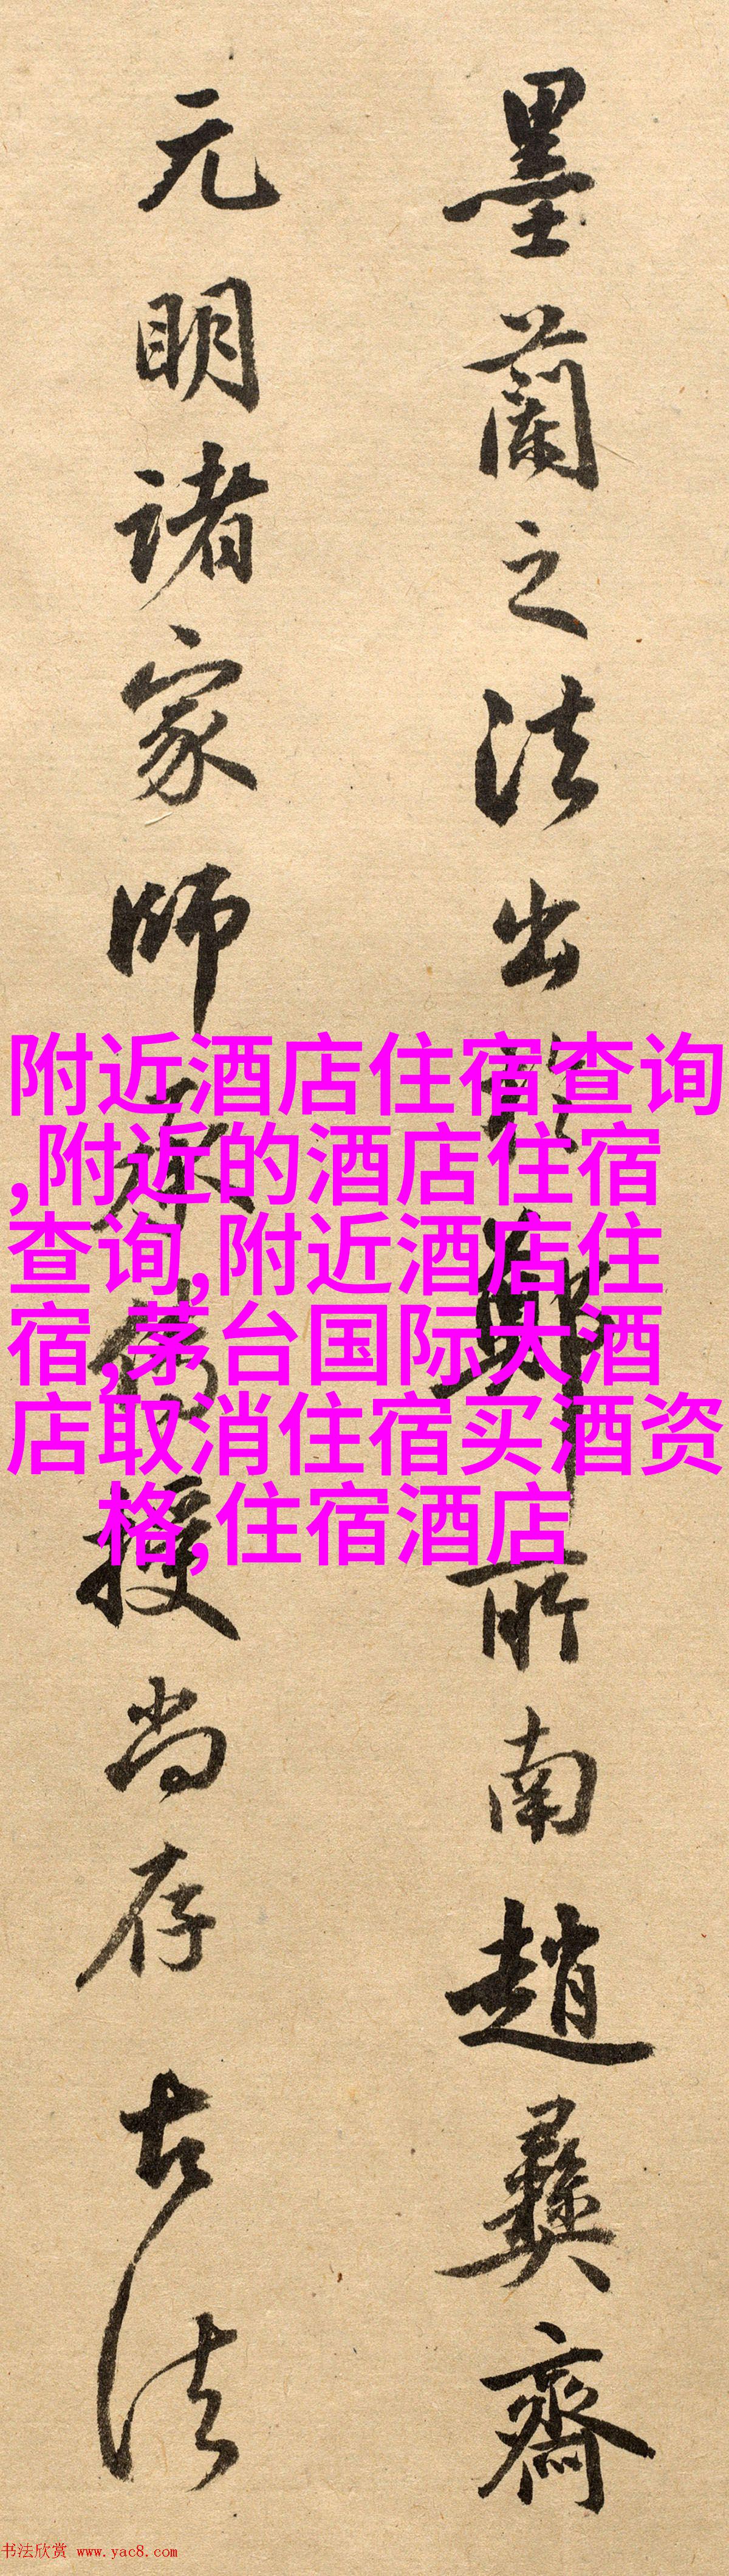 墨蘭之法出於鄭所南趙彝齋
元明诸家師承傳授尚存古法
附近酒店住宿查询
,附近的酒店住宿
查询,附近酒店住
宿,茅台国际大酒
店取消住宿买酒资
格,住宿酒店
书法欣赏 www.yac8.com